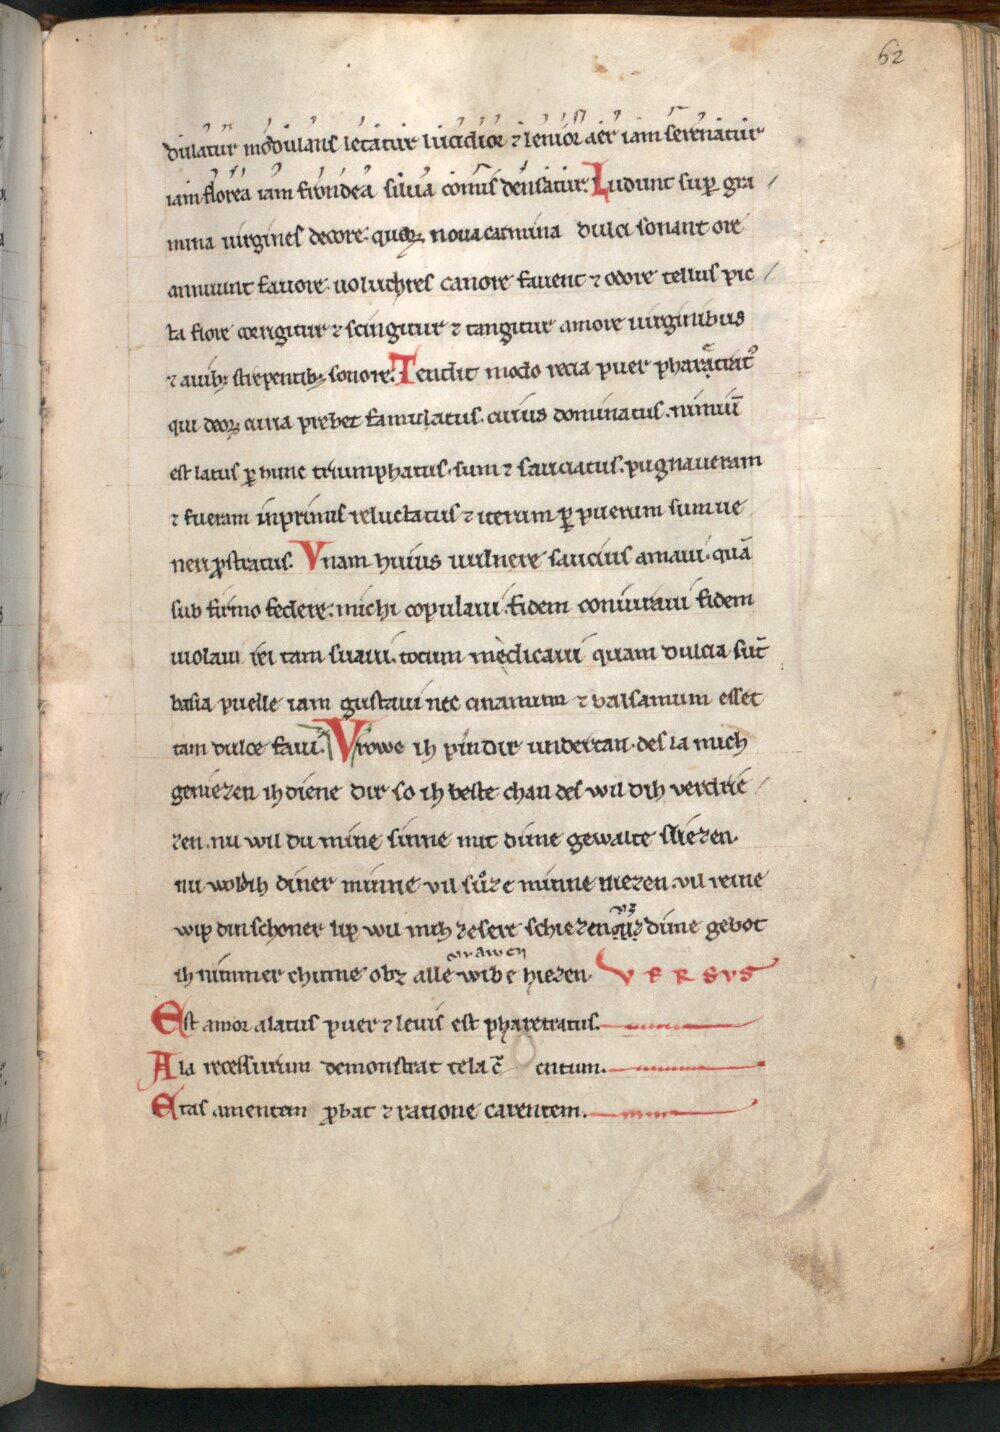 62
dulatur modulans letatur lucidior ⁊ lenior aer iam serenatur
iam florea iam frondea silua comis densatur. Ludunt sup gra
mina uirgines decore. quaꝝ noua carmina dulci sonant ore
annuunt fauore. uoluchres canore fauent ⁊ odore tellus pic
ta flore corrigitur ⁊ scingitur ⁊ tangitur amore uirginibus
⁊ auibꝫ strepentibꝫ sonore. Tendit modo recia puer pharatratꝰ
qui deoꝝ curia prebet famulatus. cuius dominatus. nimiū
est latus ꝑ hunc triumphatus. sum ⁊ sauciatus. pugnaueram
⁊ fueram inprimis reluctatus ⁊ iterum ꝑ puerum sum ue
neri ꝓstratus. Vnam huius uulnere saucius amaui. quā
sub firmo federe. michi copulaui. fidem coniuraui fidem
uiolaui rei tam suaui. totum medicaui quam dulcia sūt
basia puelle iam gustaui nec cinamum ⁊ balsamum esset
tam dulce faui. Vrowe ih pin dir undertan. des la mich
geniezen ih diene dir so ih beste chan des wil dih verdrie
zen. nu wil du mine sinne mit dime gewalte sliezen.
nu woldih diner minne vil suͦze minne niezen. vil reine
wip din schoner lip wil mih ze sere schiezen uz dime gebot
ih nimmer chume obz alle wibe hiezen. VERSUS
vrawen
Est amor alatus puer ⁊ leuis est pharetratus.
Ala recessurum demonstrat tela c̄ entum.
Etas amentem ꝓbat ⁊ ratione carentem.